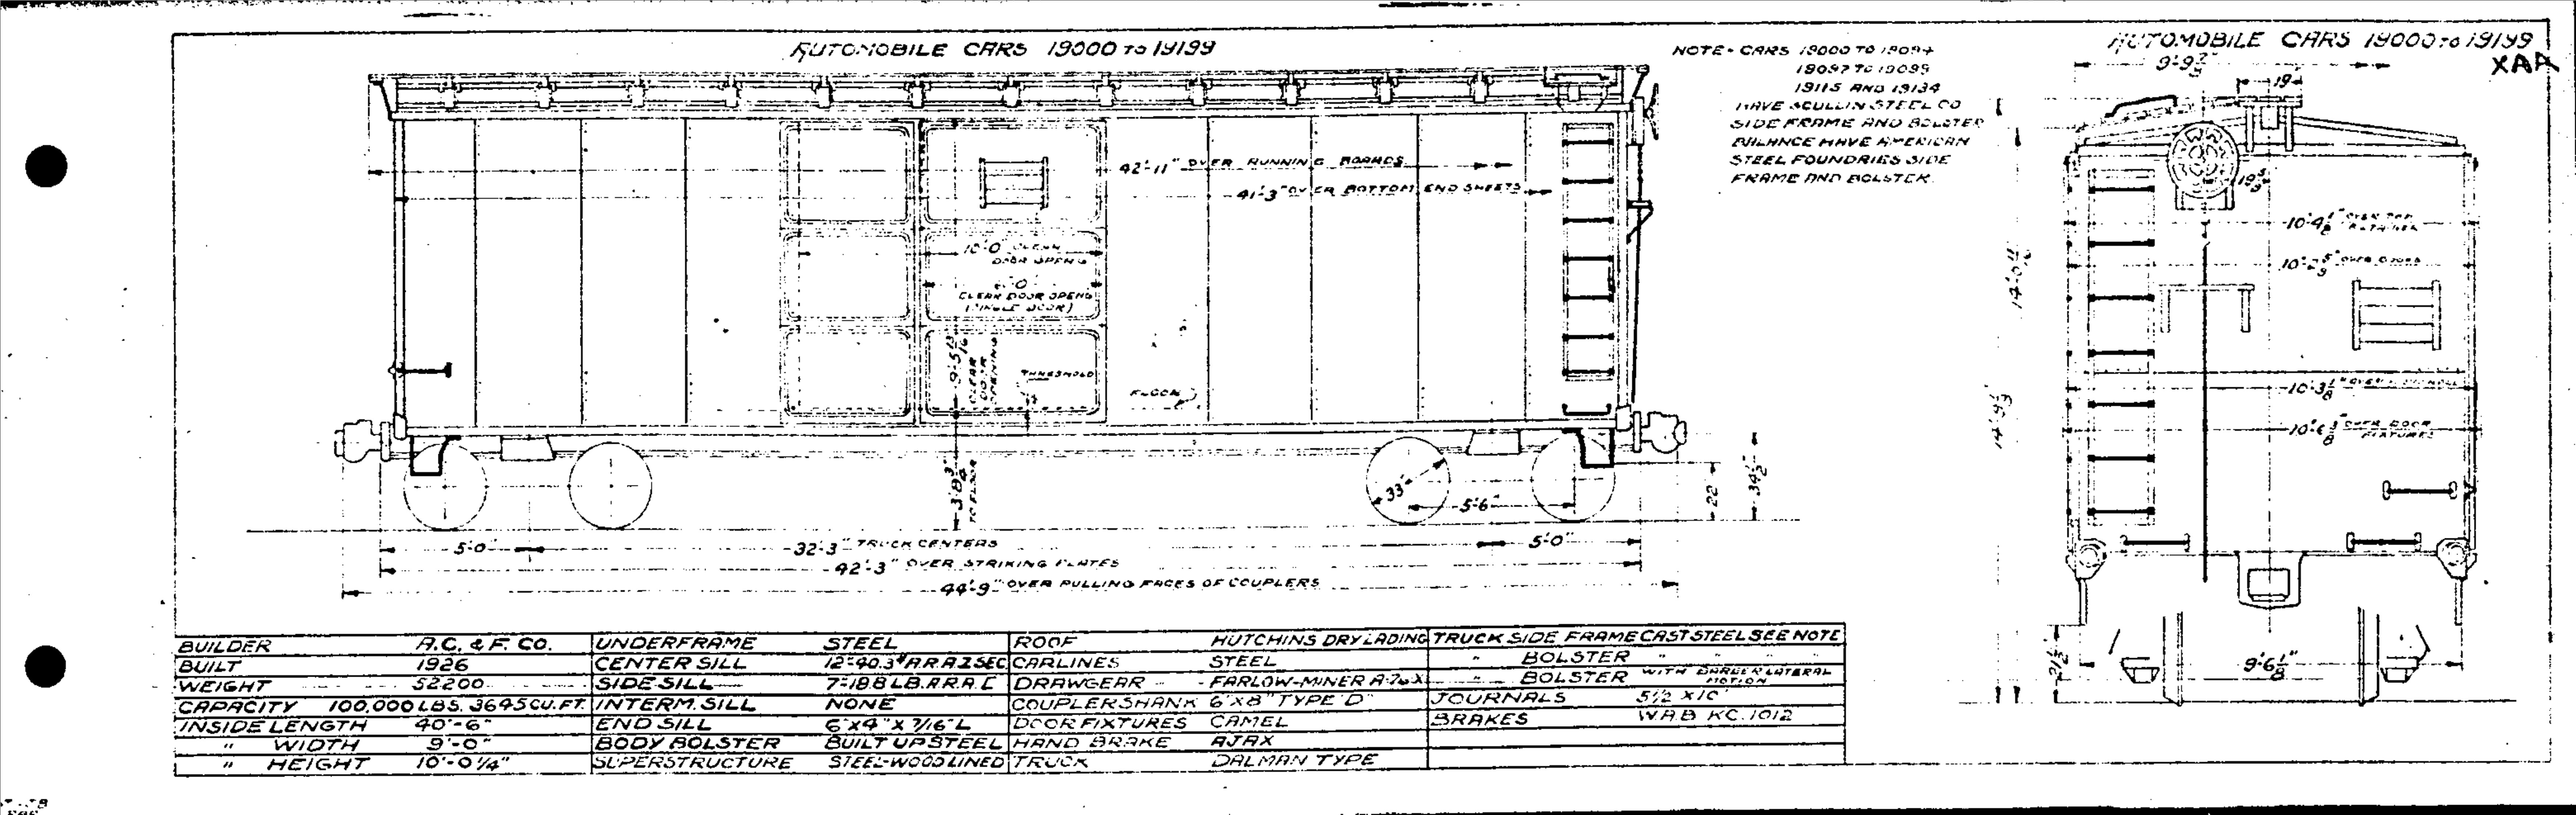 AUTOMOBILE CARS 19000 TO 19199
NOTE- CARS 19000 TO 19094
19097 TO 19099
19115 AND 19134
HAVE SCULLIN STEEL CO
SIDE FRAME AND BOLSTER
BALANCE HAVE AMERICAN
STEEL FOUNDRIES SIDE
FRAME AND BOLSTER
AUTOMOBILE CARS 19000 TO 19199
XAA
19"
42'-11" OVER RUNNING BOARDS
41'-3" OVER BOTTOM END SHEETS
10'-0" CLEAR
DOOR OPENG
CLEAR DOOR OPENG
(SINGLE DOOR)
9'-5 13/16
CLEAR
DOOR
OPENING
THRESHOLD
FLOOR
3'-8 3/4"
TO FLOOR
33"
5'-6"
22"
34 1/2"
5'-0"
32'-3" TRUCK CENTERS
5'-0"
42'-3" OVER STRIKING PLATES
44'-9" OVER PULLING FACES OF COUPLERS
10'-4 1/8"
10'-2 5/8" OVER DOORS
10'-3 1/8"
10'-6 3/8" OVER DOOR
FIXTURES
14'-0 11/16
21 1/2"
9'-6 1/8"
BUILDER A.C. & F. CO. UNDERFRAME STEEL ROOF HUTCHINS DRY LADING TRUCK SIDE FRAME CAST STEEL SEE NOTE
BUILT 1926 CENTER SILL 12"-40.3# A.R.A. Z SEC CARLINES STEEL " BOLSTER " "
WEIGHT 52200 SIDE SILL 7"-18.8 LB. A.R.A. [ DRAWGEAR FARLOW-MINER A-76X " BOLSTER WITH BARBER LATERAL MOTION
CAPACITY 100,000 LBS. 3645 CU. FT. INTERM. SILL NONE COUPLER SHANK 6"X8" TYPE "D" JOURNALS 5 1/2 X 10"
INSIDE LENGTH 40'-6" END SILL 6"X4"X 7/16" L DOOR FIXTURES CAMEL BRAKES W.A.B. KC. 1012
" WIDTH 9'-0" BODY BOLSTER BUILT UP STEEL HAND BRAKE AJAX
" HEIGHT 10'-0 1/4" SUPERSTRUCTURE STEEL-WOOD LINED TRUCK DALMAN TYPE